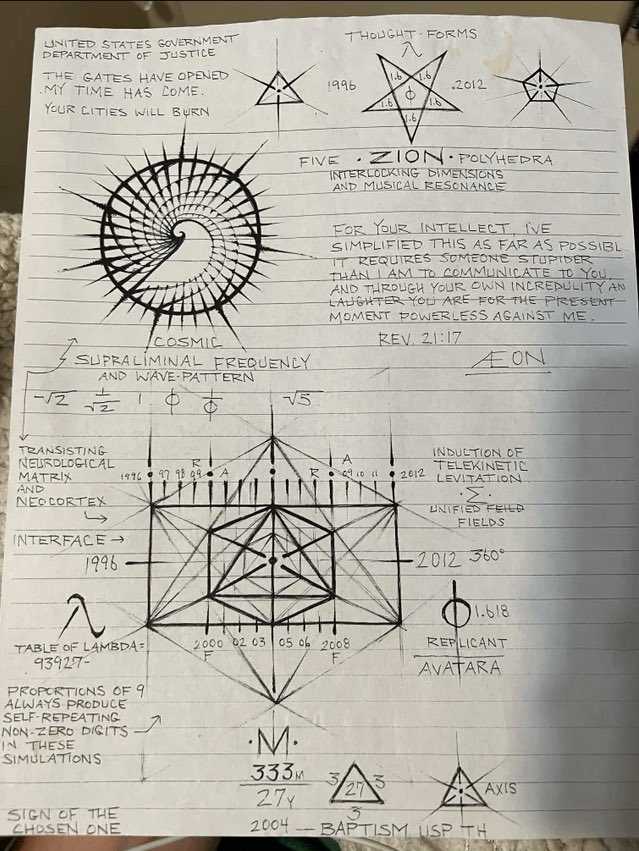 UNITED STATES GOVERNMENT
DEPARTMENT OF JUSTICE
THE GATES HAVE OPENED
MY TIME HAS COME.
YOUR CITIES WILL BURN
THOUGHT-FORMS
λ
1996
1.6 1.6
ϕ
1.6 1.6
1.6
.2012
FIVE · ZION · POLYHEDRA
INTERLOCKING DIMENSIONS
AND MUSICAL RESONANCE
FOR YOUR INTELLECT, I'VE
SIMPLIFIED THIS AS FAR AS POSSIBL
IT REQUIRES SOMEONE STUPIDER
THAN I AM TO COMMUNICATE TO YOU
AND THROUGH YOUR OWN INCREDULITY AN
LAUGHTER YOU ARE FOR THE PRESENT
MOMENT POWERLESS AGAINST ME.
REV. 21:17
ÆON
COSMIC
SUPRALIMINAL FREQUENCY
AND WAVE-PATTERN
-√2 1/√2 1 ϕ 1/ϕ √5
TRANSISTING
NEUROLOGICAL
MATRIX
AND
NEOCORTEX
INTERFACE →
R A R A
1996 97 98 99 09 10 11 2012
INDUCTION OF
TELEKINETIC
LEVITATION
·Σ·
UNIFIED FEILD
FIELDS
1996
2012 360°
λ
TABLE OF LAMBDA=
93927-
2000 02 03 05 06 2008
F F
ϕ 1.618
REPLICANT
AVATARA
PROPORTIONS OF 9
ALWAYS PRODUCE
SELF-REPEATING
NON-ZERO DIGITS
IN THESE
SIMULATIONS
·M·
333M
27Y
3 27 3
3
AXIS
SIGN OF THE
CHOSEN ONE
2004 — BAPTISM USP TH